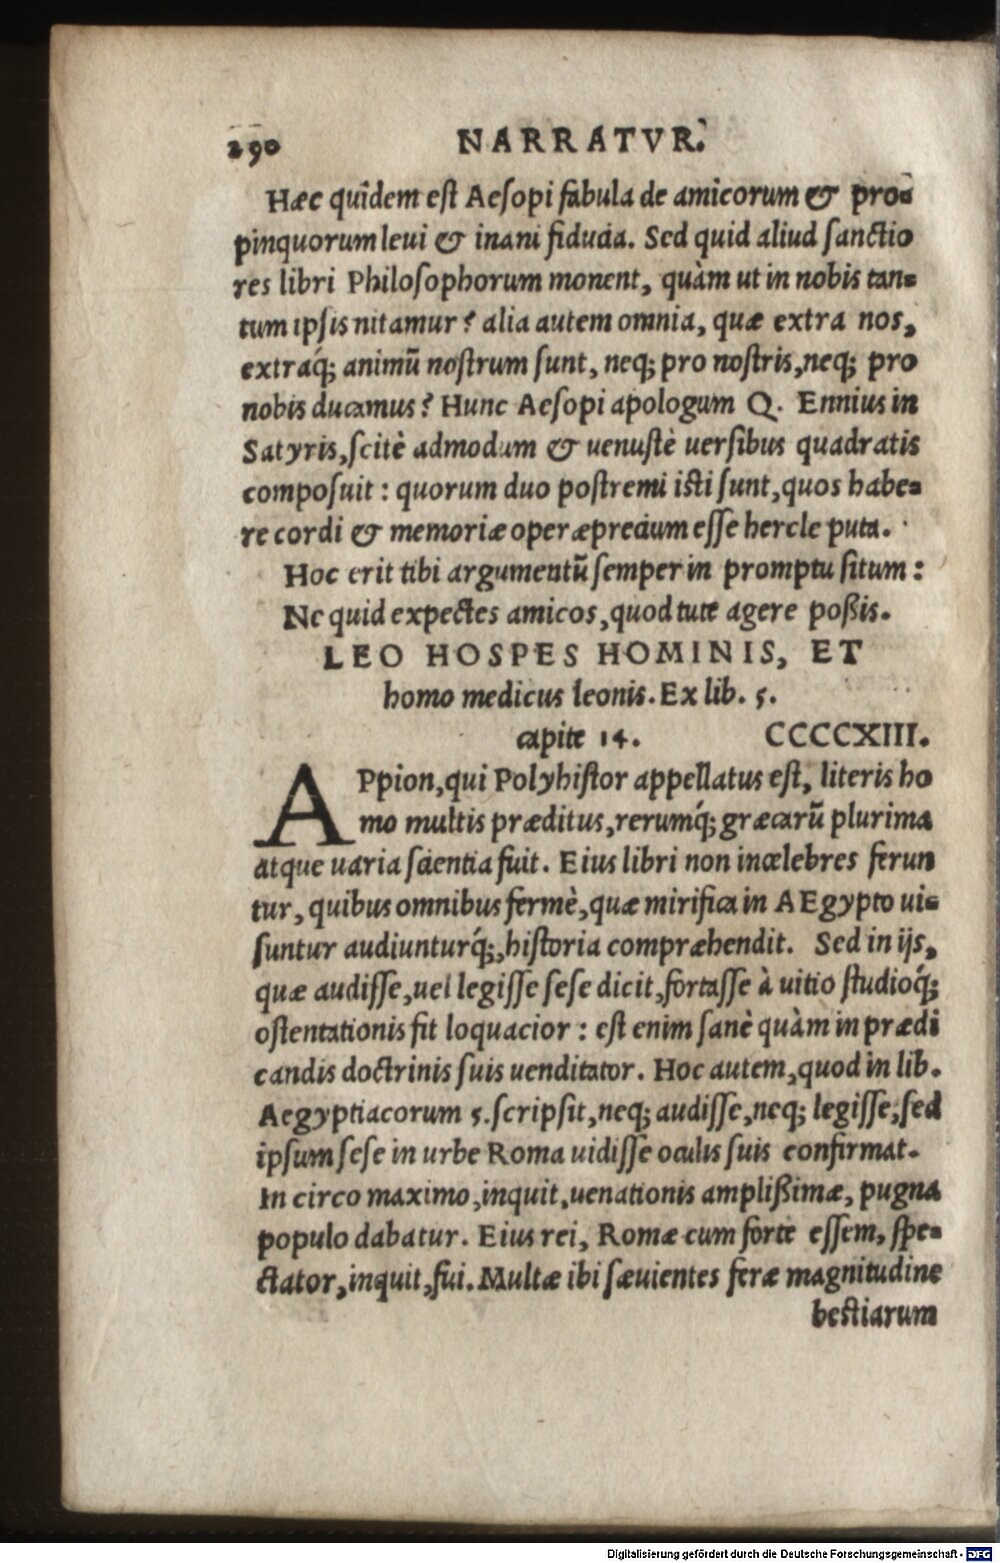 290 NARRATVR.
Hæc quidem eſt Aeſopi fabula de amicorum & pro-
pinquorum leui & inani fiducia. Sed quid aliud ſanctio
res libri Philoſophorum monent, quàm ut in nobis tan-
tum ipſis nitamur? alia autem omnia, quæ extra nos,
extraq́; animũ noſtrum ſunt, neq; pro noſtris, neq; pro
nobis ducamus? Hunc Aeſopi apologum Q. Ennius in
Satyris, ſcitè admodum & uenuſtè uerſibus quadratis
compoſuit: quorum duo poſtremi iſti ſunt, quos habe-
re cordi & memoriæ operæprecium eſſe hercle puta.
Hoc erit tibi argumentũ ſemper in promptu ſitum:
Ne quid expectes amicos, quod tute agere poßis.
LEO HOSPES HOMINIS, ET
homo medicus leonis. Ex lib. 5.
capite 14. CCCCXIII.
APpion, qui Polyhiſtor appellatus eſt, literis ho
mo multis præditus, rerumq́; græcarũ plurima
atque uaria ſcientia fuit. Eius libri non incelebres ferun
tur, quibus omnibus fermè, quæ mirifica in AEgypto ui-
ſuntur audiunturq́;, hiſtoria compræhendit. Sed in ijs,
quæ audiſſe, uel legiſſe ſeſe dicit, fortaſſe à uitio ſtudioq́;
oſtentationis fit loquacior: eſt enim ſanè quàm in prædi
candis doctrinis ſuis uenditator. Hoc autem, quod in lib.
Aegyptiacorum 5. ſcripſit, neq; audiſſe, neq; legiſſe, ſed
ipſum ſeſe in urbe Roma uidiſſe oculis ſuis confirmat.
In circo maximo, inquit, uenationis amplißimæ, pugna
populo dabatur. Eius rei, Romæ cum forte eſſem, ſpe-
ctator, inquit, fui. Multæ ibi ſæuientes feræ magnitudine
beſtiarum
Digitalisierung gefördert durch die Deutsche Forschungsgemeinschaft - DFG